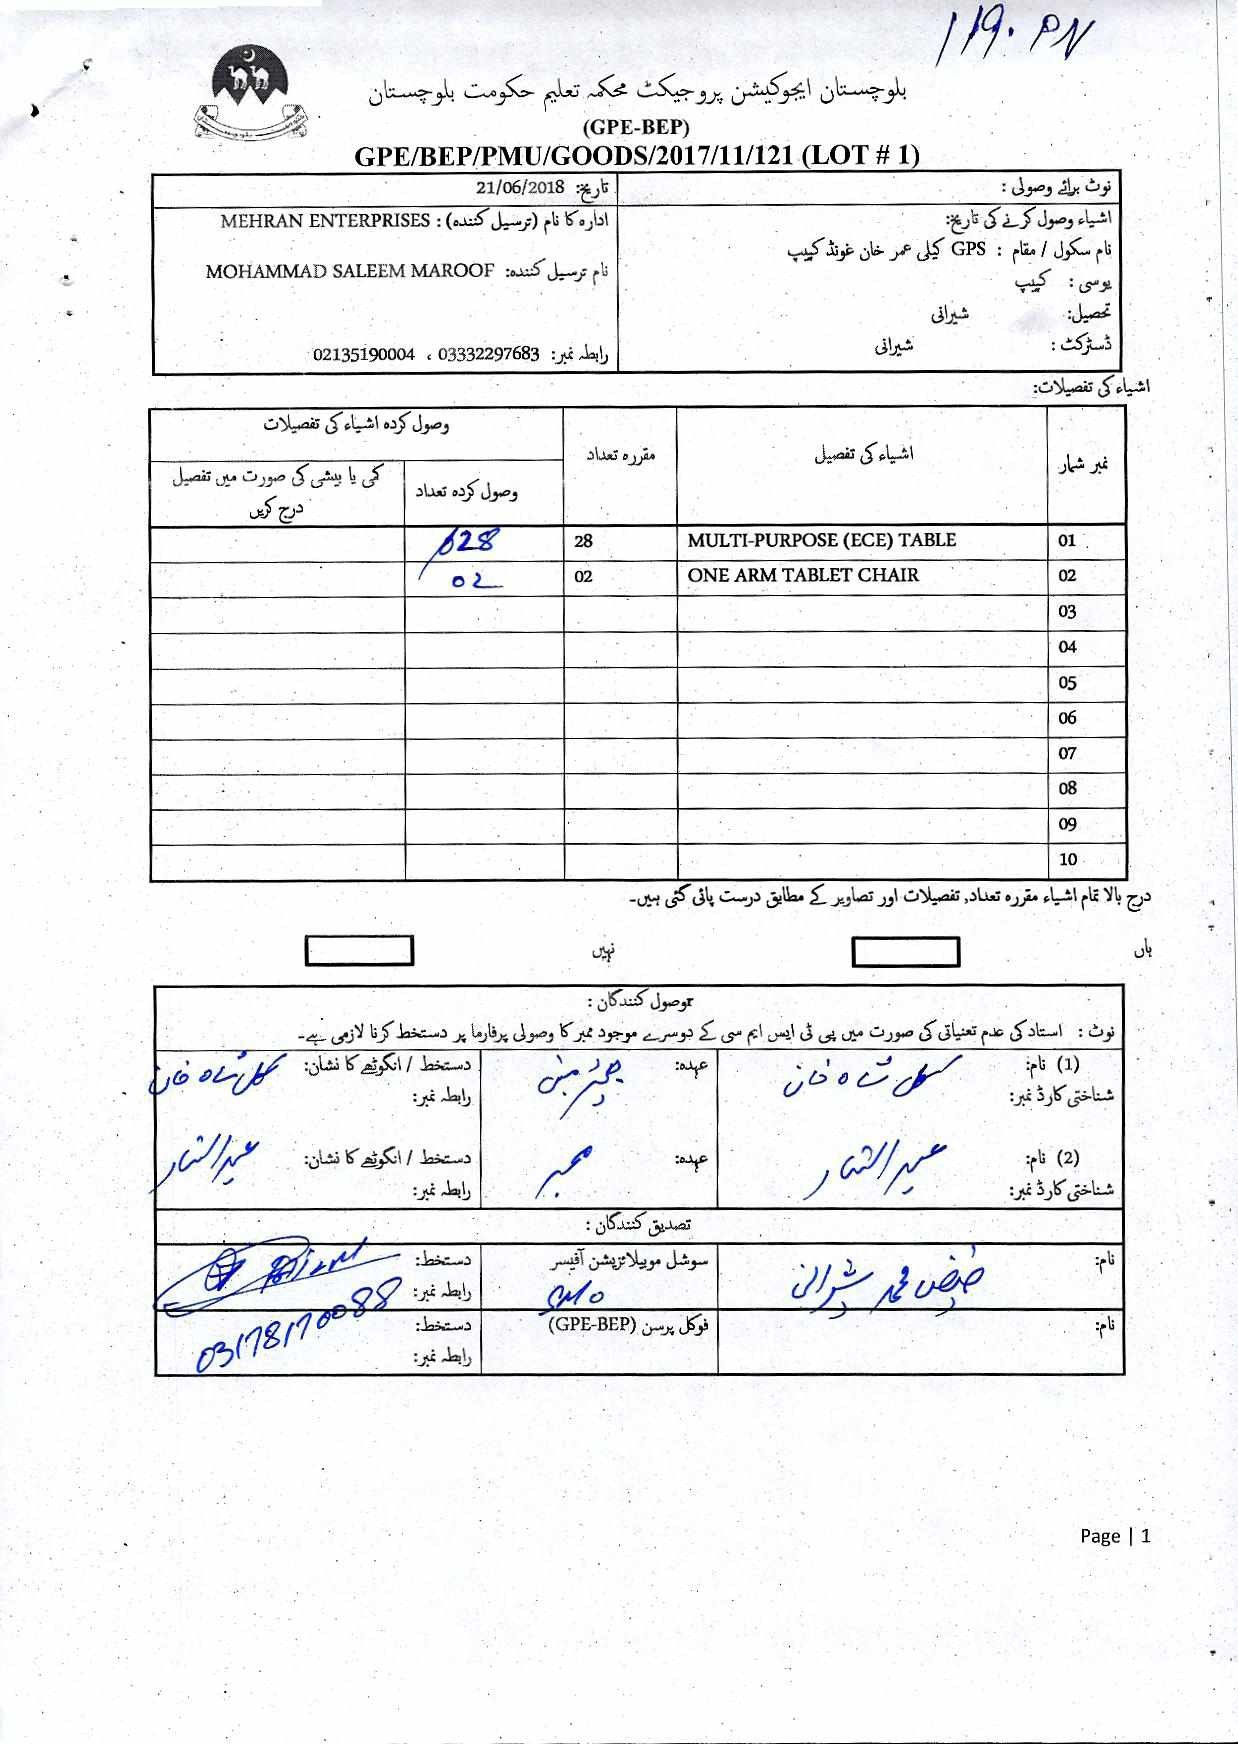 119. PN
بلوچستان ایجوکیشن پروجیکٹ محکمہ تعلیم حکومت بلوچستان
(GPE-BEP)
GPE/BEP/PMU/GOODS/2017/11/121 (LOT # 1)
نوٹ برائے وصولی :
اشیاء وصول کرنے کی تاریخ:
نام سکول / مقام : GPS کیلی عمر خان غونڈ کیپپ
یوسی : کیپپ
تحصیل: شیرانی
ڈسٹرکٹ : شیرانی
تاریخ: 21/06/2018
ادارہ کا نام (ترسیل کنندہ) : MEHRAN ENTERPRISES
نام ترسیل کنندہ: MOHAMMAD SALEEM MAROOF
رابطہ نمبر: 03332297683 ، 02135190004
اشیاء کی تفصیلات:
نمبر شمار اشیاء کی تفصیل مقررہ تعداد وصول کردہ اشیاء کی تفصیلات
وصول کردہ تعداد کمی یا بیشی کی صورت میں تفصیل درج کریں
01 MULTI-PURPOSE (ECE) TABLE 28 28
02 ONE ARM TABLET CHAIR 02 02
03
04
05
06
07
08
09
10
درج بالا تمام اشیاء مقررہ تعداد, تفصیلات اور تصاویر کے مطابق درست پائی گئی ہیں۔
ہاں نہیں
وصول کنندگان :
نوٹ : استاد کی عدم تعنیاتی کی صورت میں پی ٹی ایس ایم سی کے دوسرے موجود ممبر کا وصولی پرفارما پر دستخط کرنا لازمی ہے۔
(1) نام: گل شاہ خان عہدہ: چیئرمین دستخط / انگوٹھے کا نشان: گل شاہ خان
شناختی کارڈ نمبر: رابطہ نمبر:
(2) نام: عبدالستار عہدہ: ممبر دستخط / انگوٹھے کا نشان: عبدالستار
شناختی کارڈ نمبر: رابطہ نمبر:
تصدیق کنندگان :
نام: فیض محمد شیرانی سوشل موبیلائزیشن آفیسر SMO دستخط:
رابطہ نمبر: 03178170088
نام: فوکل پرسن (GPE-BEP) دستخط:
رابطہ نمبر:
Page | 1